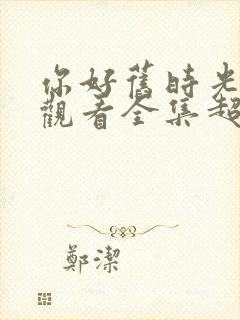 你好舊時光
觀看全集超
鄭潔